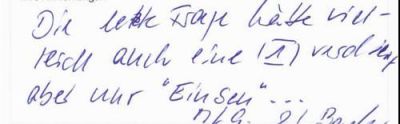 Die letzte Frage hätte viel-
leicht auch eine (1) verdient
aber nur "Einsen"...